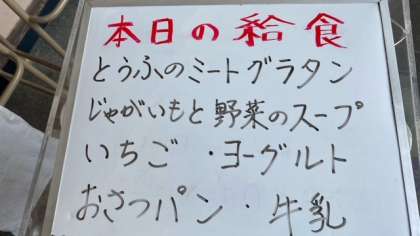 本日の給食
とうふのミートグラタン
じゃがいもと野菜のスープ
いちご・ヨーグルト
おさつパン・牛乳